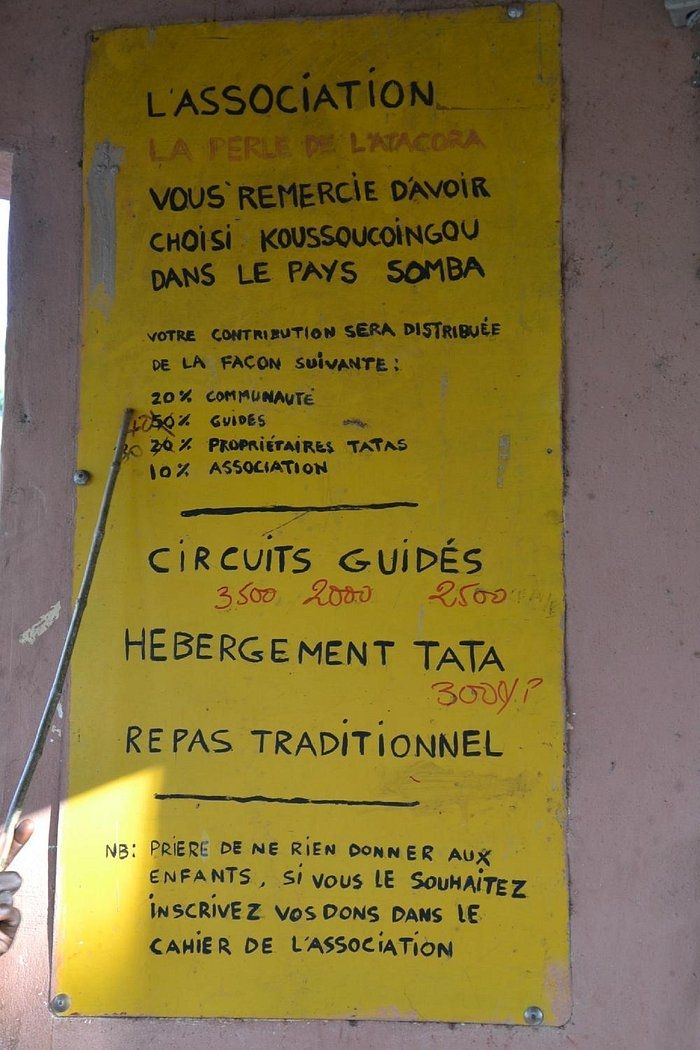 L'ASSOCIATION
LA PERLE DE L'ATACORA
VOUS REMERCIE D'AVOIR
CHOISI KOUSSOUCOINGOU
DANS LE PAYS SOMBA
VOTRE CONTRIBUTION SERA DISTRIBUÉE
DE LA FAÇON SUIVANTE:
20% COMMUNAUTÉ
50% GUIDES
30 20% PROPRIÉTAIRES TATAS
10% ASSOCIATION
CIRCUITS GUIDÉS
3500 2000 2500
HEBERGEMENT TATA
REPAS TRADITIONNEL
NB: PRIERE DE NE RIEN DONNER AUX
ENFANTS, SI VOUS LE SOUHAITEZ
INSCRIVEZ VOS DONS DANS LE
CAHIER DE L'ASSOCIATION